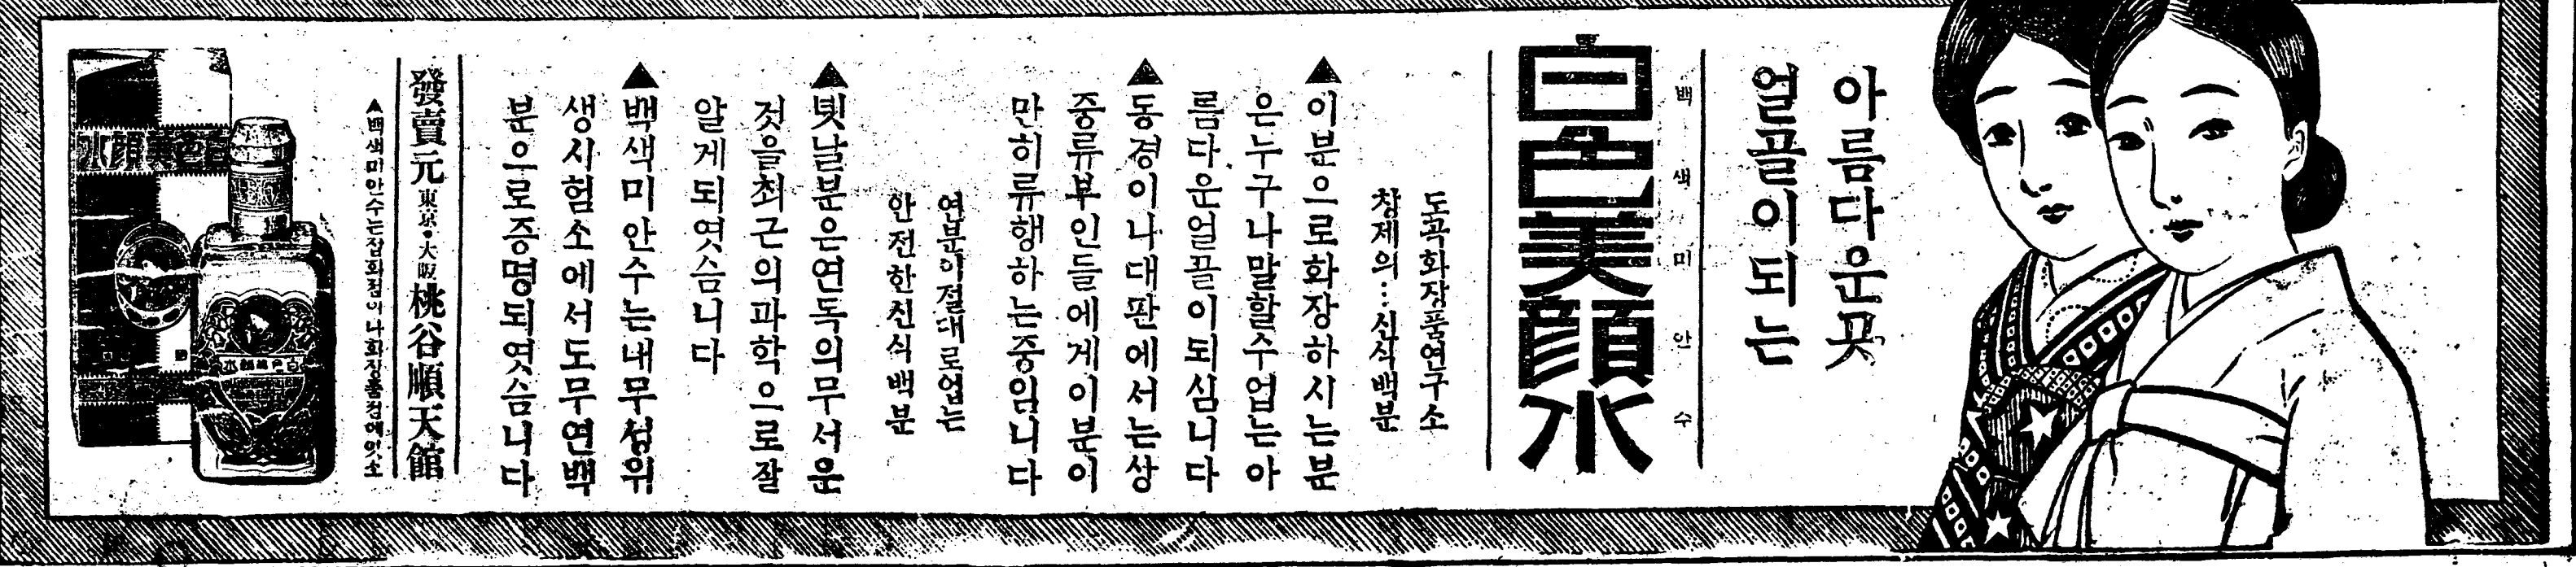 아름다운곳
얼골이되는
백색미안수
白色美顔水
도곡화장품연구소
창제의…신식백분
▲이분으로화장하시는분
은누구나말할수업는아
름다운얼골이되심니다
▲동경이나대판에서는상
중류부인들에게이분이
만히류행하는중임니다
연분이절대로업는
안전한신식백분
▲텟날분은연독의무서운
것을최근의과학으로잘
알게되엿슴니다
▲백색미안수는내무성위
생시험소에서도무연백
분으로증명되엿슴니다
發賣元 東京・大阪 桃谷順天館
▲백색미안수는잡화점이나화장품점에잇소
白色美顔水
白色美顔水